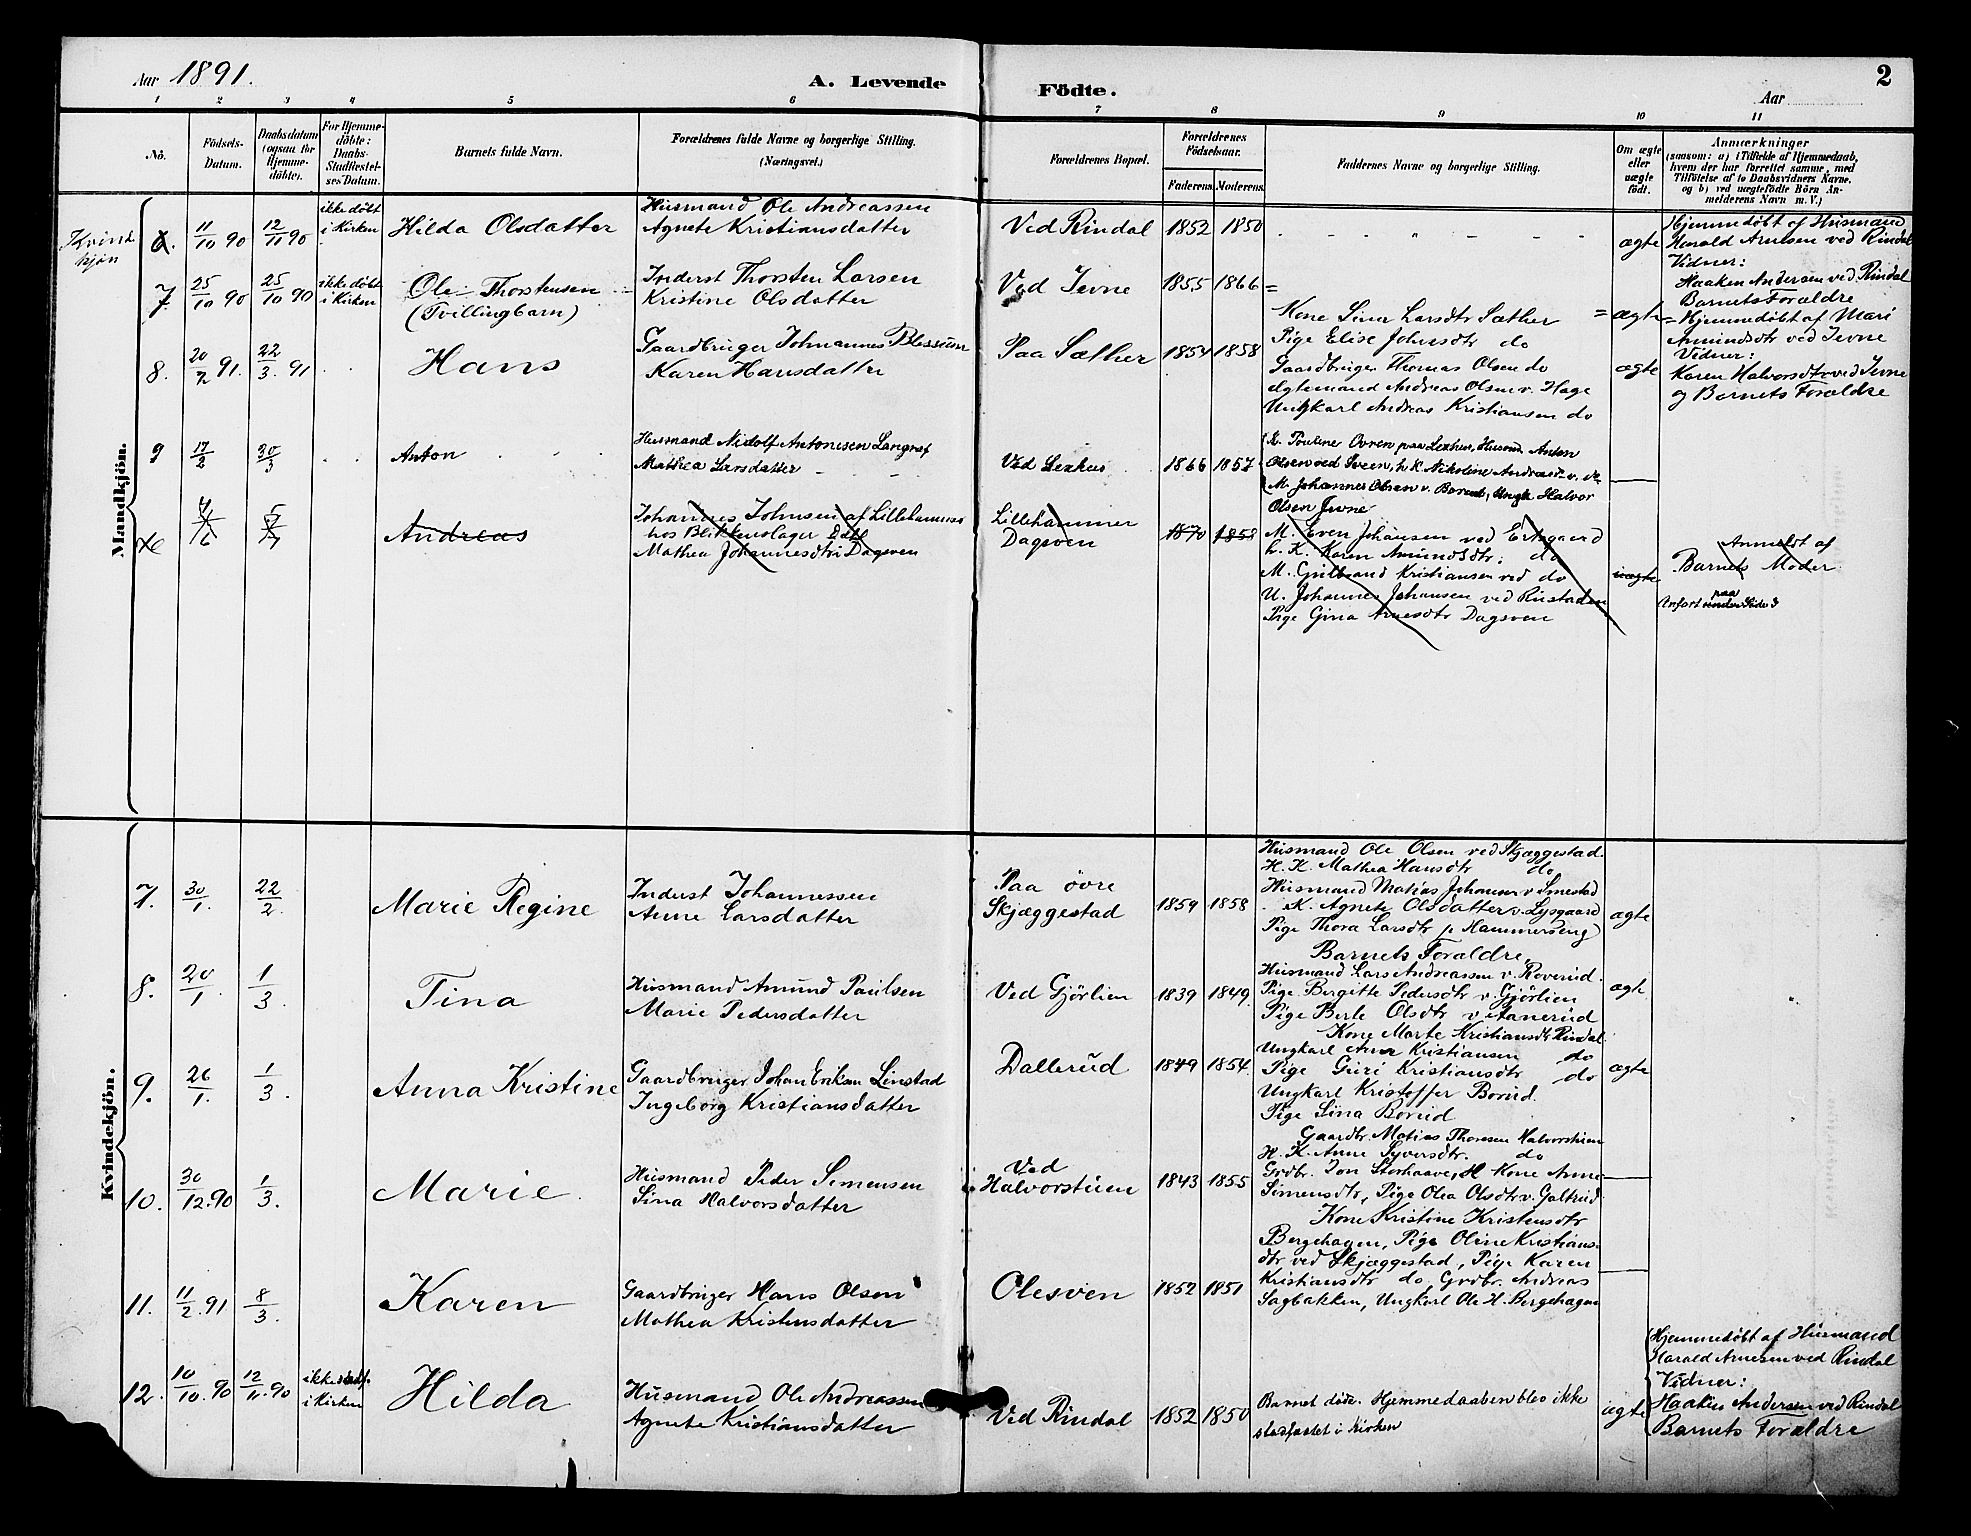 Aar 1891.
A. Levende
Födte.
Aar
2
1 2 3 4 5 6 7 8 9 10 11
No.
Födsels-
Datum.
Daabsdatum
(ogsaa for
Hjemme-
döbte).
For Hjemme-
döbte:
Daabs-
Stadfæstel-
ses-Datum.
Barnets fulde Navn.
Forældrenes fulde Navne og borgerlige Stilling.
(Næringsvei.)
Forældrenes Bopæl.
Forældrenes
Födselsaar.
Faderens. Moderens.
Faddernes Navne og borgerlige Stilling.
Om ægte
eller
uægte
födt.
Anmærkninger
(saasom: a) i Tilfælde af Hjemmedaab,
hvem der har forrettet samme, med
Tilföielse af to Daabsvidners Navne,
og b) ved uægtefödte Börn An-
melderens Navn m. V.)
Mandkjön.
Kvind
kjön
6. 11/10 90 12/11 90
ikke döbt
i Kirken
Hilda Olsdatter
Husmand Ole Andreassen
Agnete Kristiansdatter
Ved Rindal 1852 1850
ægte
Hjemmedöbt af Husmand
Harald Arnesen ved Rindal
Vidner:
Haaken Andersen ved Rindal
Barnets Forældre
7. 25/10 90 25/10 90
ikke döbt
i Kirken
Ole Thorstensen
(Tvillingbarn)
Inderst Thorsten Larsen
Kristine Olsdatter
Ved Jevne 1855 1866 =
= ægte
= Hjemmedöbt af Mari
Amundsdtr ved Jevne
Vidner:
Karen Halvorsdtr ved Jevne
og Barnets Forældre
8. 20/2 91. 22/3. 91
Hans
Gaardbruger Johannes Plessum
Karen Hansdatter
Paa Sæther 1854 1858
Kone Sina Larsdtr Sæther
Pige Elise Johnsdtr do
Gaardbruger Thomas Olsen do
Ægtemand Andreas Olsen v. Hage
Ungkarl Andreas Kristiansen do
ægte
9 17/2 30/3
Anton
Husmand Nidolf Antonisen
Mathea Larsdatter
Ved 1866 1857
K. Pouline Ovren paa Husmd. Anton
Olsen ved Sveen, h. K. Nikoline
M. Johannes Olsen v. Ungk. Halvor
Olsen Jevne
4/6 5/7
Andreas
Johannes Johnsen af Lillehammer
hos Blikkenslager Dahl
Mathea Johannesdtr i Dagsven
Lillehammer
Dagsven
1870 1858
M. Even Johansen ved
h. K. Karen Amundsdtr. do
M. Gulbrand Kristiansen ved do
U. Johannes Johansen ved Rustaden
Pige Gina Arnesdtr Dagsven
uægte
Anmeldt af
Barnets Moder
Anfört paa Side 3
Kvindekjön.
7. 30/1. 22/2.
Marie Regine
Inderst Johannessen
Anne Larsdatter
Paa övre
Skjæggestad
1859 1858
Husmand Ole Olsen ved Skjæggestad.
H. K. Mathea Hansdtr do
Husmand Matias Johansen v. Smestad
K. Agnete Olsdatter v. Lysgaard
Pige Thora Larsdtr p Hammerseng
ægte
8. 20/1. 1/3.
Tina
Husmand Amund Paulsen
Marie Pedersdatter
Ved Gjörlien 1839 1849.
Barnets Forældre,
Husmand Lars Andreassen v. Roverud.
Pige Bergitte Pedersdtr v. Gjörlien
Pige Berte Olsdtr v. Aanerud
ægte
9. 26/1. 1/3.
Anna Kristine
Gaardbruger Johan Eriksen Linstad
Ingeborg Kristiansdatter
Dallerud 1849 1854.
Kone Marte Kristiansdtr Rindal
Ungkarl Arne Kristiansen do
Pige Guri Kristiansdtr do
Ungkarl Kristoffer Borud.
Pige Lina Borud
ægte
10. 30/12. 90 1/3.
Marie.
Husmand Peder Simensen
Sina Halvorsdatter
Ved
Halvorstuen 1843 1855
Gaardbr. Matias Thoresen Halvorstuen
H. K. Anne Syversdtr. do
Grdbr. Jon Storhaave, H Kone Anne
Simensdtr, Pige Olea Olsdtr v. Galtrud
11. 11/2. 91 8/3.
Karen
Gaardbruger Hans Olsen
Mathea Kristensdatter
Olesven 1852 1851
Kone Kristine Kristensdtr
Bergehagen, Pige Oline Kristians-
dtr ved Skjæggestad, Pige Karen
Kristiansdtr do, Grdbr. Andreas
Sagbakken, Ungkarl Ole H. Bergehagen
12. 10/10. 90 12/11. 90
ikke stadf.
i Kirken
Hilda
Husmand Ole Andreassen
Agnete Kristiansdatter
Ved Rindal 1852 1850
Barnet döde. Hjemmedaaben blev ikke
stadfæstet i Kirken
ægte
Hjemmedöbt af Husmand
Harald Arnesen ved Rindal
Vidner:
Haaken Andersen ved Rindal
Barnets Forældre